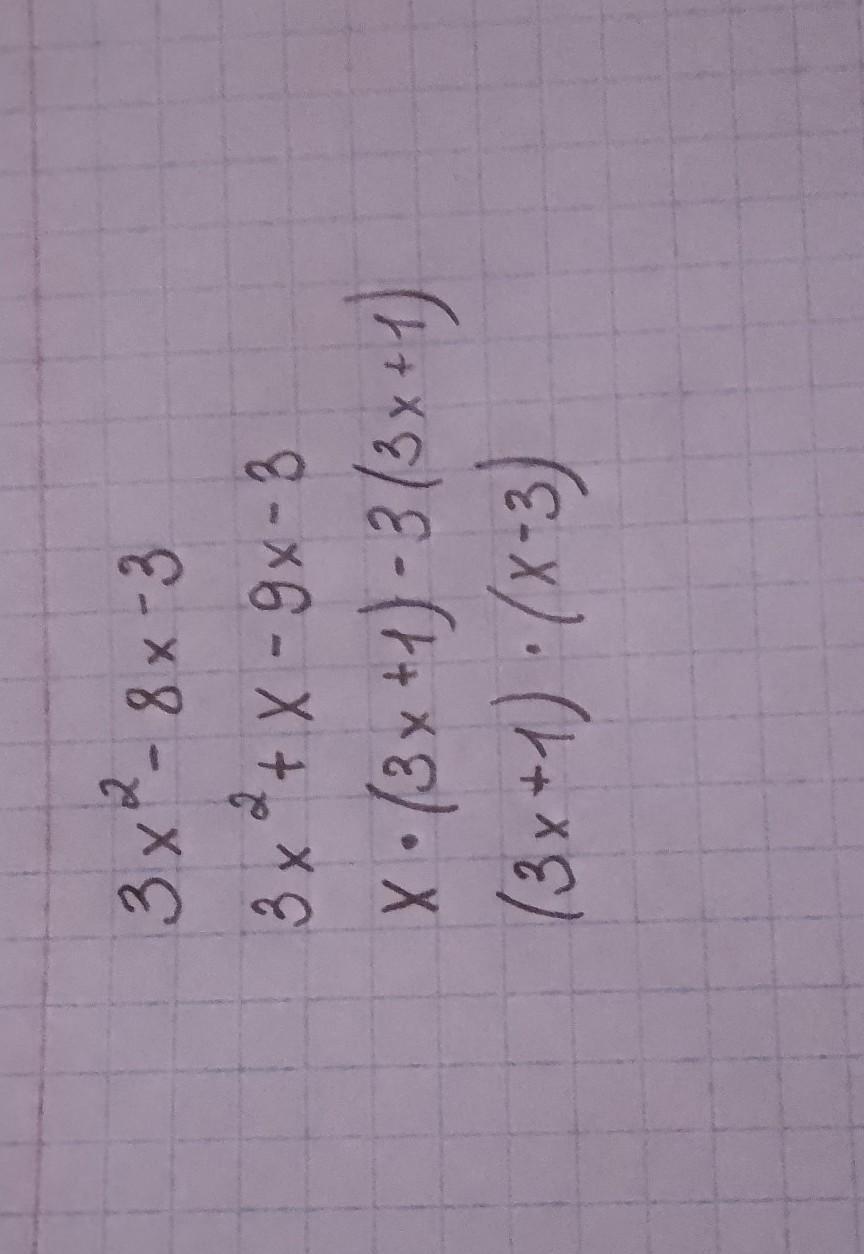 3x² - 8x - 3
3x² + x - 9x - 3
x · (3x + 1) - 3(3x + 1)
(3x + 1) · (x - 3)